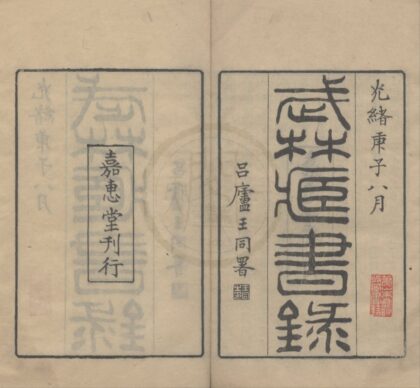 光緒庚子八月
武林藏書錄
呂廬王同署
嘉惠堂刊行